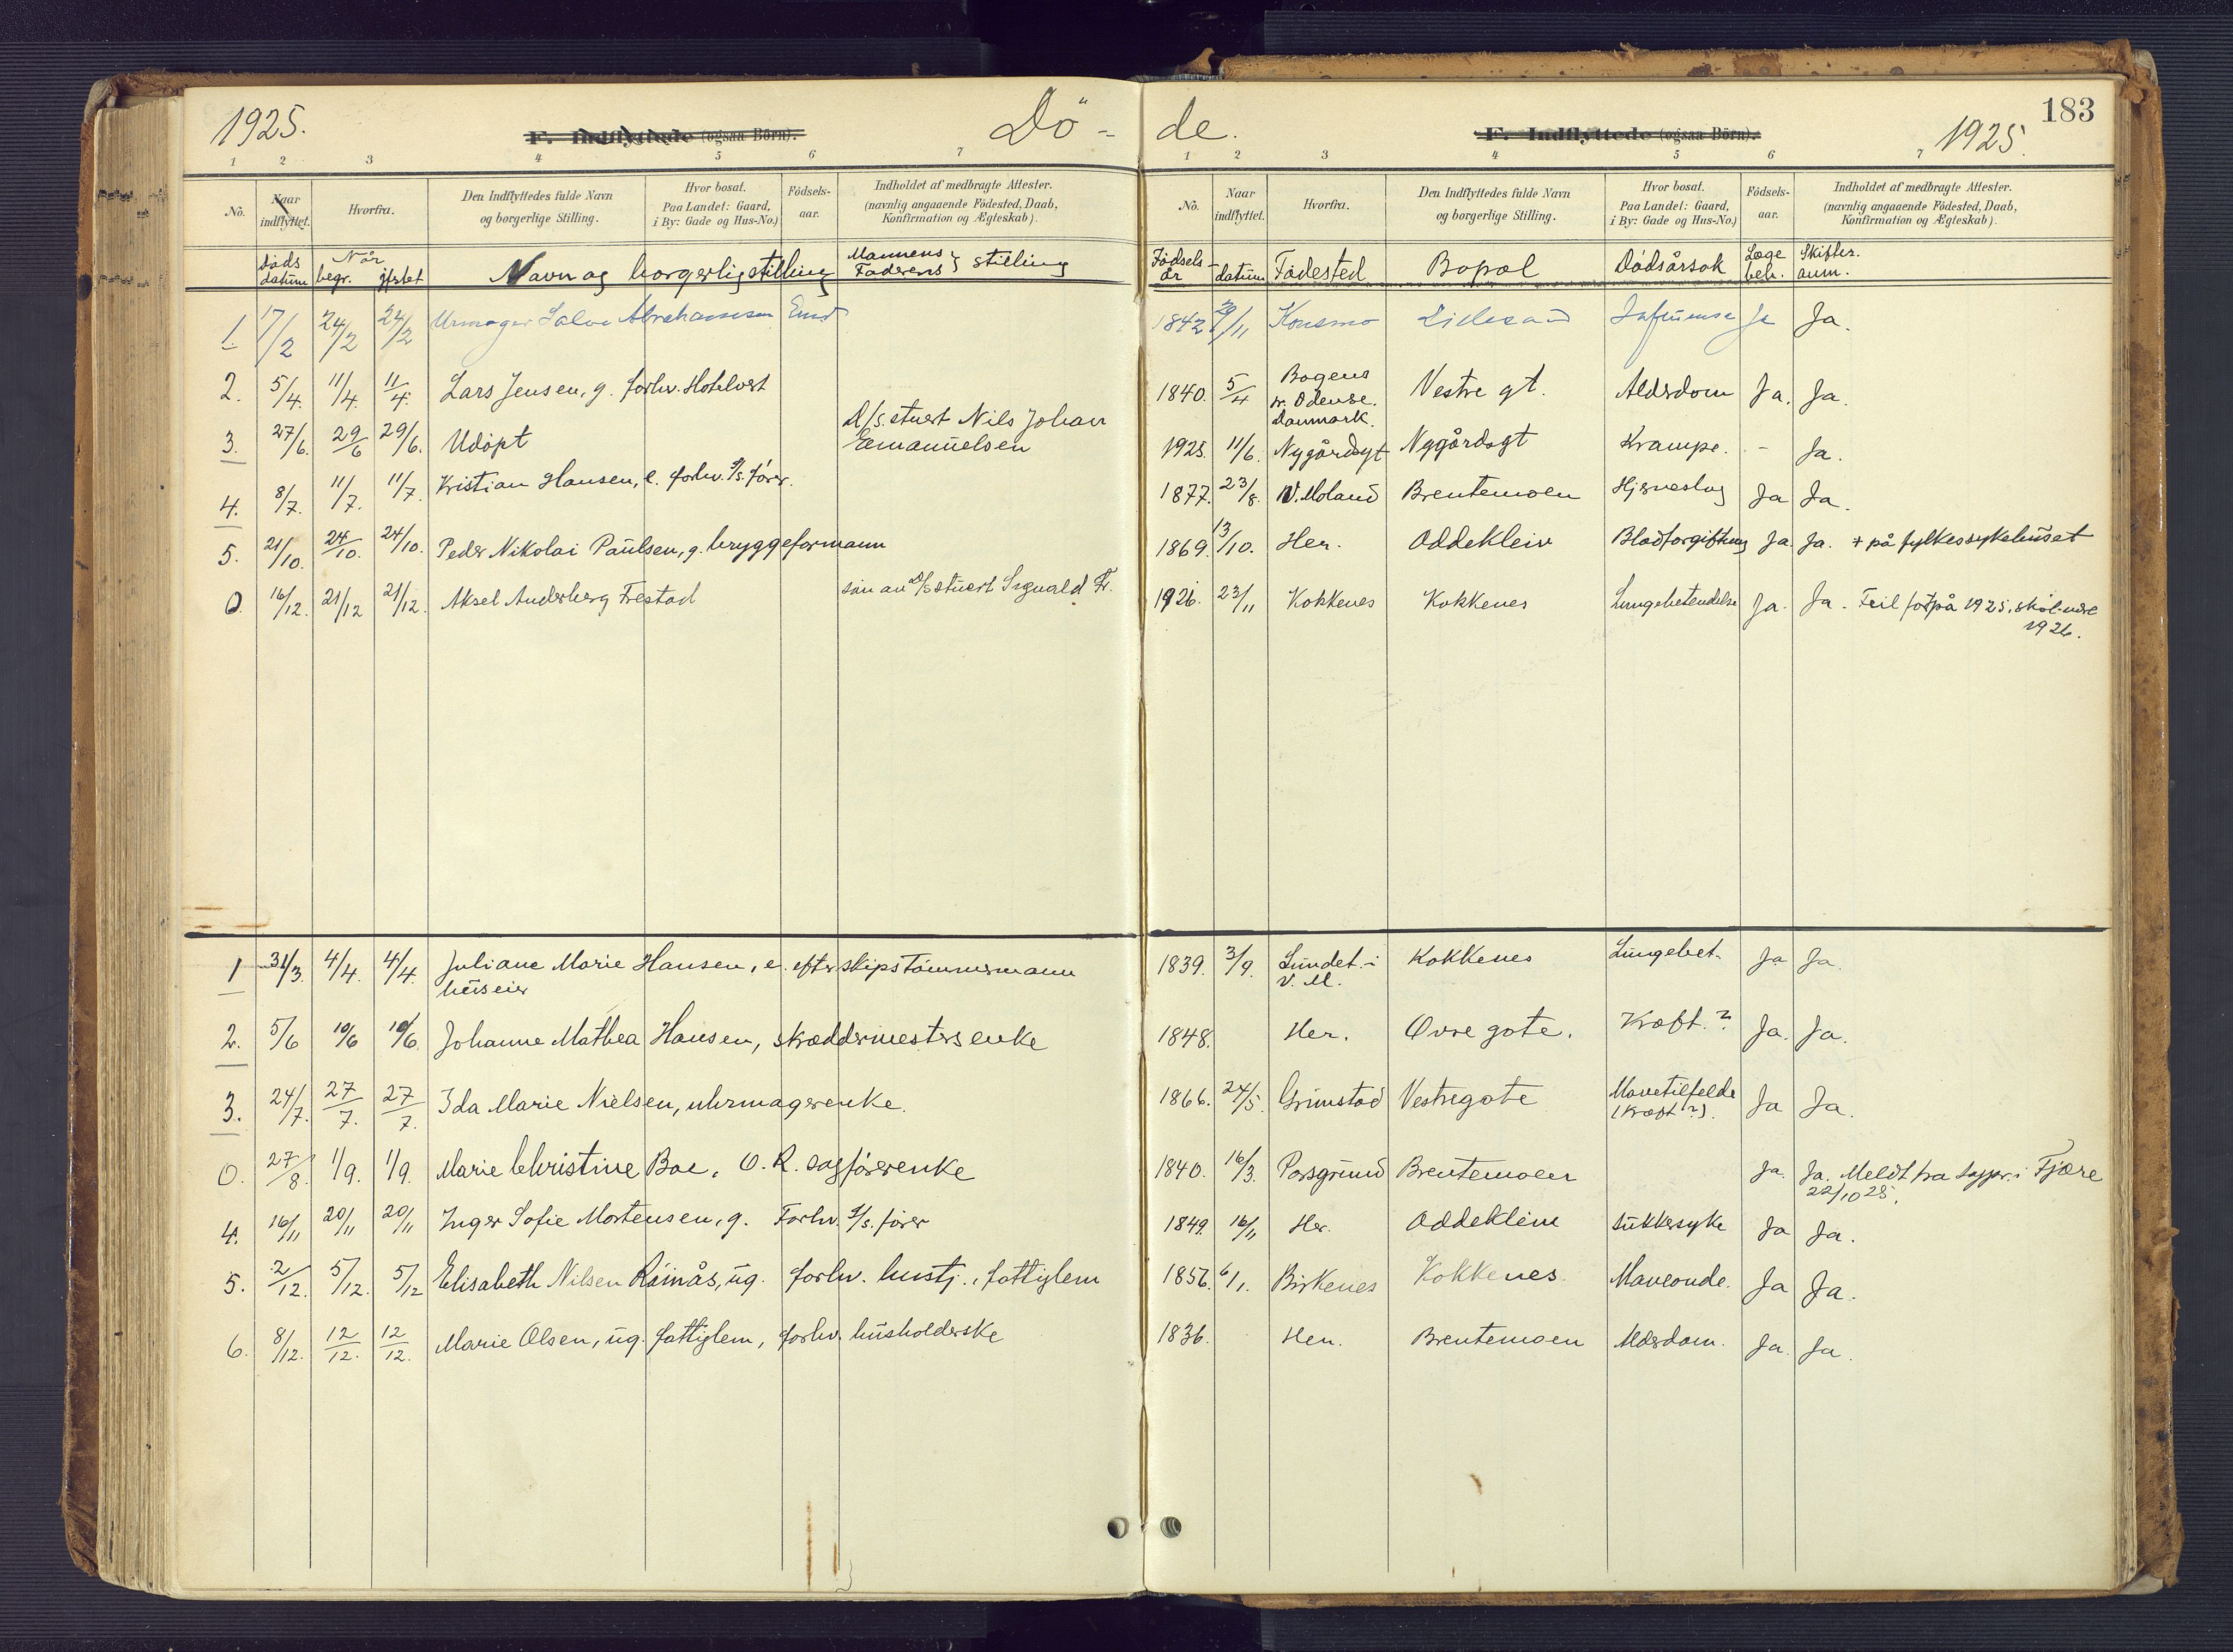 1925. Dö- de. 1925. 183
F. Indflyttede (ogsaa Börn). F. Indflyttede (ogsaa Börn).
1 2 3 4 5 6 7 1 2 3 4 5 6 7
No. Naar indflyttet. Hvorfra. Den Indflyttedes fulde Navn og borgerlige Stilling. Hvor bosat. Paa Landet: Gaard, i By: Gade og Hus-No.) Födsels-aar. Indholdet af medbragte Attester. (navnlig angaaende Födested, Daab, Konfirmation og Ægteskab).
No. Naar indflyttet. Hvorfra. Den Indflyttedes fulde Navn og borgerlige Stilling. Hvor bosat. Paa Landet: Gaard, i By: Gade og Hus-No.) Födsels-aar. Indholdet af medbragte Attester. (navnlig angaaende Födested, Daab, Konfirmation og Ægteskab).
Döds datum Når begr. jfstet Navn og borgerlig stilling Mannens Faderens } stilling Födsels-år datum Födested Bopæl Dödsårsak Læge beh. Skifter. anm.
1. 17/2 24/2 24/2 Urmager Salve Abrahamsen 1842 /11 Konsmo Lillesand Influensa Ja Ja.
2. 5/4. 11/4. 11/4. Lars Jensen, g. forhv. Hotelvert 1840. 5/4 Bogens nr. Odense. Danmark. Vestre gt. Aldsdom Ja. Ja.
3. 27/6. 29/6 29/6. Udöpt D/s. stuert Nils Johan Emanuelsen 1925. 11/6. Nygårdsgt Nygårdsgt Krampe. - Ja.
4. 8/7. 11/7. 11/7. Kristian Hansen, e. forhv. S/s. förer. 1877. 23/8. V. Moland Brentemoen Hjerneslag Ja Ja.
5. 21/10. 24/10. 24/10. Peder Nikolai Paulsen, g. bryggeformann 1869. 13/10. Her. Oddekleiv Blodforgiftning Ja. Ja. + på fylkessykehuset
0. 16/12. 21/12 21/12. Aksel Anderberg Frestad sön av D/s stuert Sigvald Fr. 1926. 23/11 Kokkenes Kokkenes Lungebetendelse Ja. Ja. Feil fört på 1925, skal være 1926.
1 31/3. 4/4. 4/4. Juliane Marie Hansen, e. efter skipstömmermann huseier 1839. 3/9. Lundet i V. M. Kokkenes Lungebet. Ja Ja.
2. 5/6 10/6 10/6. Johanne Mathea Hansen, skræddermesters enke 1848. Her. Övre gate. Kræft.? Ja. Ja.
3. 24/7. 27/7. 27/7. Ida Marie Nielsen, uhrmagerenke. 1866. 24/5. Grimstad Vestregate Mavetilfelde (Kræft?). Ja Ja.
0. 27/8. 1/9. 1/9. Marie Christine Boe, O. R. sagförerenke 1840. 16/3. Porsgrund Brentemoen Ja. Ja. Meldt fra sogpr. i Fjære 22/10 25.
4. 16/11 20/11 20/11 Inger Sofie Mortensen, g. Forhv. S/s. förer 1849. 16/11 Her. Oddekleiv Sukkersyke Ja Ja.
5. 2/12. 5/12. 5/12 Elisabeth Nilsen Röinås, ug. forhv. hustj., fattiglem 1856. 6/1. Birkenes Kokkenes. Maveonde. Ja Ja.
6. 8/12. 12/12. 12/12. Marie Olsen, ug. fattiglem, forhv. husholderske 1836. Her. Brentemoen Alderdom. Ja. Ja.